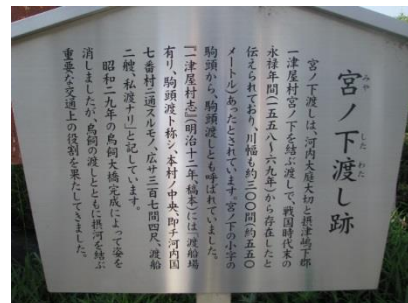 宮ノ下渡し跡
みや した わた
宮ノ下渡しは、河内木庭大切と摂津嶋下郡
一津屋村宮ノ下を結ぶ渡しで、戦国時代末の
永禄年間(一五五八～六九年)から存在したと
伝えられており、川幅も約三〇〇間(約五五〇
メートル)あったとされています。宮ノ下の小字の
駒頭から、駒頭渡しとも呼ばれていました。
『一津屋村志』(明治十二年稿本)には「渡船場
有リ、駒頭渡ト称シ、本村ノ中央、即チ河内国
七番村ニ通スルモノ、広サ三百七間四尺、渡船
二艘、私渡ナリ」と記しています。
昭和二九年の鳥飼大橋完成によって姿を
消しましたが、鳥飼の渡しとともに摂河を結ぶ
重要な交通上の役割を果たしてきました。